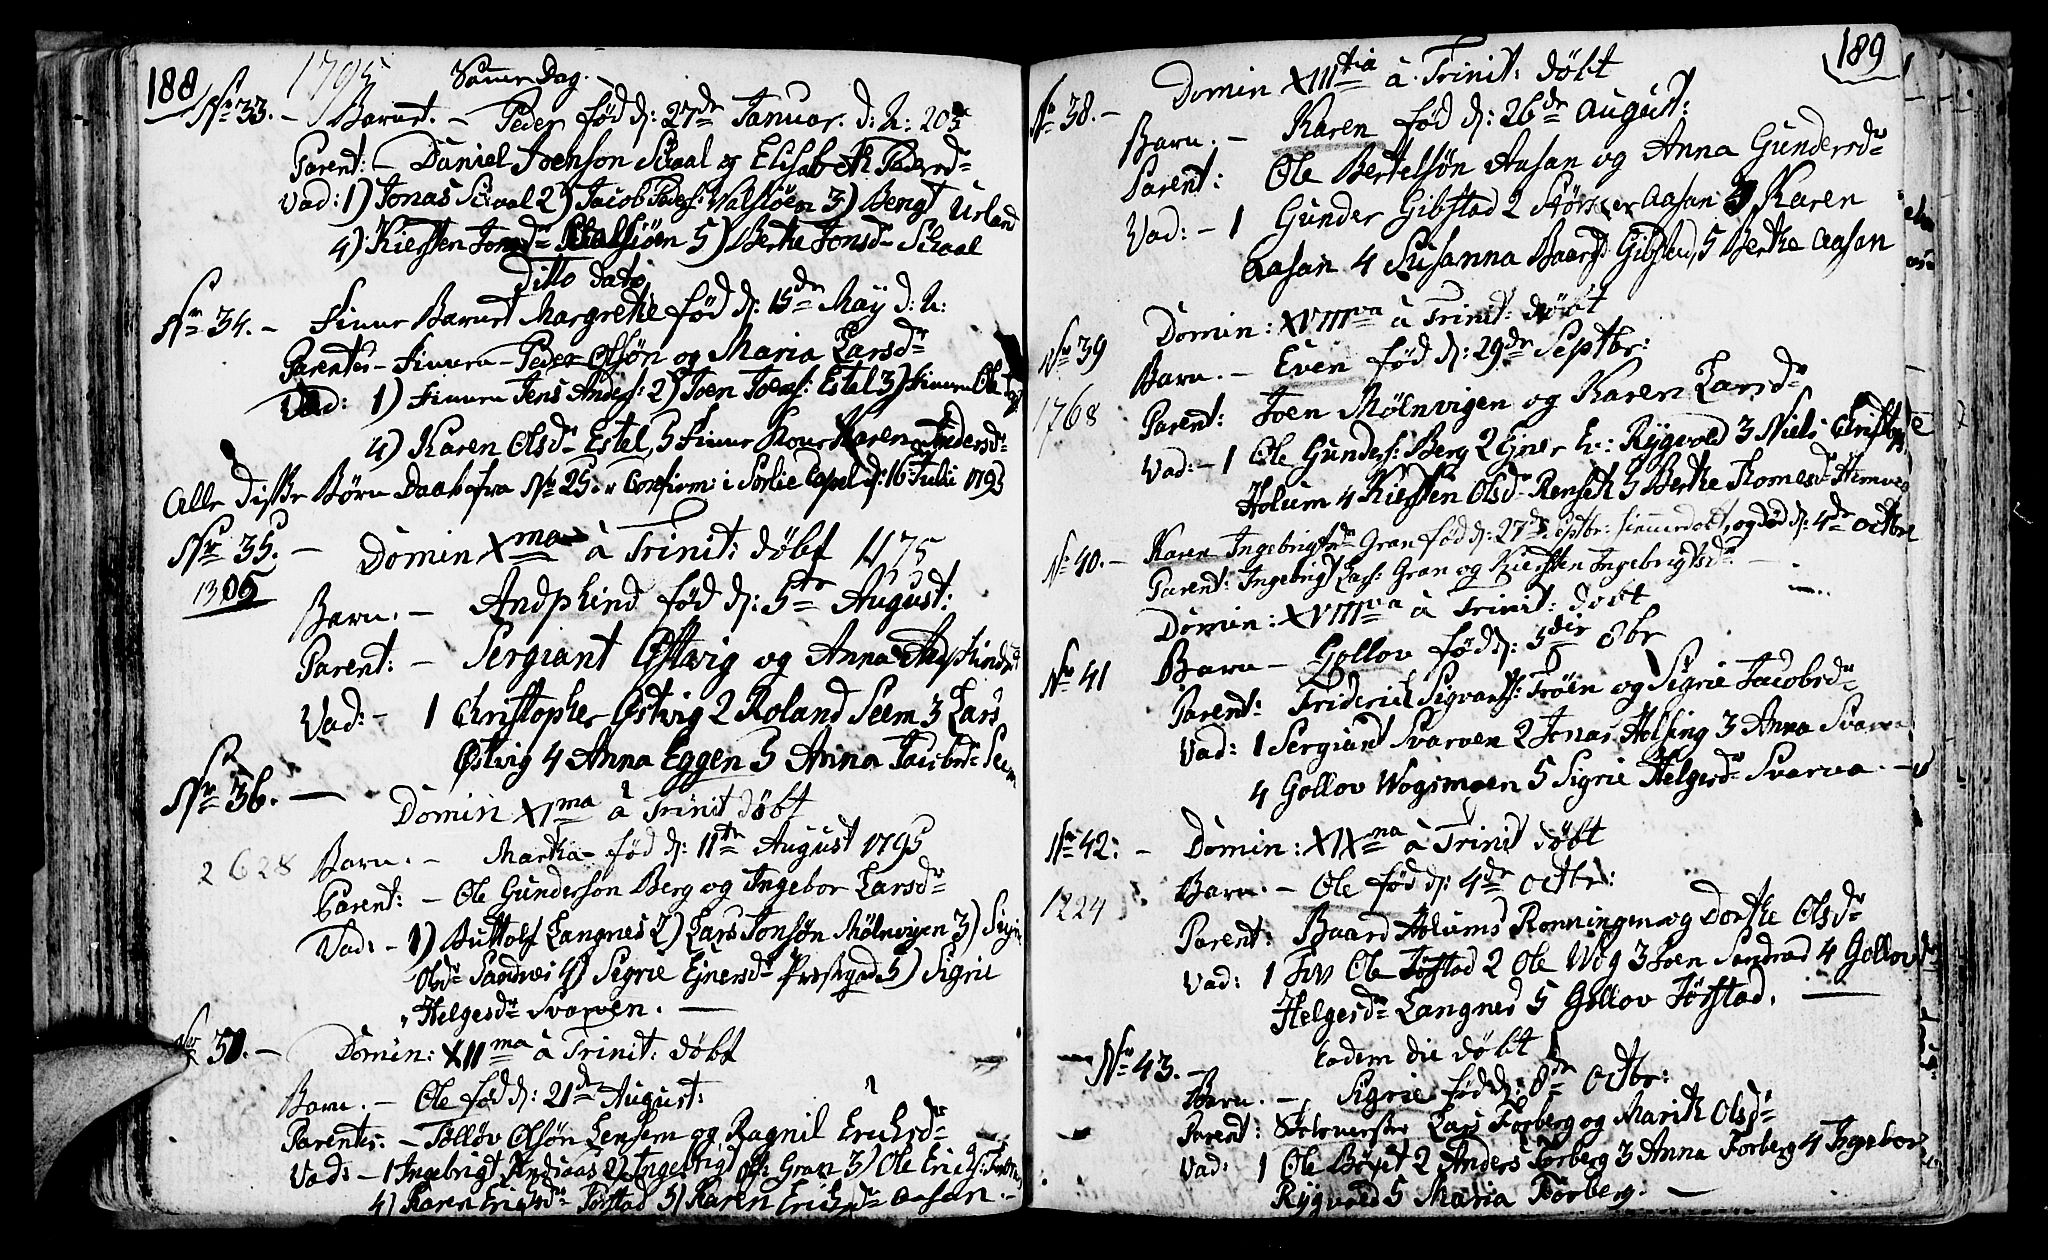 188
1795
Samme Dag.
No 33. - Barnet. - Peder fød d: 27de Januar. d: A:
Parent: - Daniel Joenson Schaal og Elisabeth Pedersdr
Vad: 1) Jonas Schaal 2) Jacob Peders: Valsiøen 3) Bengt Urland
4) Kiersten Jonsdr 5) Berthe Jonsdr Schaal
Ditto dato
No 34. - Finne Barnet Margrethe fød d: 15de Maÿ d: A:
Parentes - Finnen - Peder Olsøn og Maria Larsdr
Vad: 1) Finnen Jens Anders: 2) Joen Joens: Estal 3) Finnen Ole
4) Karen Olsdr Estal, 5 Finne Kone Karen Andersdr
Alle disse Børn Daabe fra No 25. er Confirm: i Sørlie Capel d: 16 Julii 1795
No 35. - Domin Xma à Trinit: døbt 1175
1305
Barn. - Andphind fød d: 5te August:
Parent: - Sergiant Østvig og Anna Andphindsdr
Vad: - 1 Christopher Østvig 2 Roland Seem 3 Lars
Østvig 4 Anna Eggen 5 Anna Jacobsdr Seem
No 36. - Domin XIma à Trinit døbt
2628
Barn. - Martha fød d: 11te August 1795
Parent: - Ole Gunderson Berg og Ingebor Larsdr
Vad: - 1) Buttolf Langnes 2) Lars Jonsøn Mølnvigen 3) Sigrie
Olsdr Sandnes 4) Sigrie Ejnersdr Præstgrd 5) Sigrie
Helgesdr Svarven. -
No 37. - Domin: XIIma à Trinit: døbt
Barn. - Ole fød d: 21de August:
Parentes: - Tolløv Olsøn Lensem og Ragnil Erichsdr
Vad: - 1 Ingebrigt Andiaas 2) Ingebrigt Ols: Gran 3) Ole Erichs:
4) Karen Erichsdr Førstad 5) Karen Erichsdr Aasan. -
189
No 38. - Domin XIIItia à Trinit: døbt
Barn. - Karen fød d: 26de August:
Parent: Ole Bertelsøn Aasan og Anna Gundersdr
Vad: - 1 Gunder Gibstad 2 Størker Aasan 3 Karen
Aasan 4 Susanna Baards: Gibstad, 5 Berthe Aasan
No 39 Domin: XVIIIva à Trinit: døbt
Barn. - Even fød d: 29de Septbr:
1768
Parent: Joen Mølnvigen og Karen Larsdr
Vad: - 1 Ole Gunders: Berg 2 Ejner E: Rÿgvold 3 Niels Christophs:
Holum 4 Kiersten Olsdr Renseth 5 Berthe Thomesdr
No 40. - Karen Ingebrigtsdr Gran fød d: 27de Septbr: hiemmedøbt, og død d: 4de Octbr
Parent: Ingebrigt Lars: Gran og Kiersten Ingebrigtsdr -
Domin: XVIIIva à Trinit: døbt
No 41 Barn - Gollov fød d: 3die 8br
Parent: Friderich Sigvarts: Trøen og Sigrie Jacobsdr
Vad: 1 Sergiant Svarven 2 Jonas Holsing 3 Anna Svarva
4 Gollov Wogsmoen 5 Sigrie Helgesdr Svarva. -
No 42: - Domin: XIXna à Trinit døbt
1224
Barn. - Ole fød d: 4de Octbr:
Parent: Baard Holums Ronningen og Dorthe Olsdr
Vad: 1 Ole Førstad 2 Ole Wog 3 Joen Sandnes 4 Gollov
Helgesdr Langnes 5 Gollov Førstad. -
No 43. - Eodem die døbt
Barn. - Sigrie fød d: 8de Octbr:
Parent: Skolemester Lars Forberg og Marith Olsdr
Vad: 1 Ole 2 Anders Forberg 3 Anna Forberg 4 Ingebor
Rÿgvold 5 Maria Forberg. -